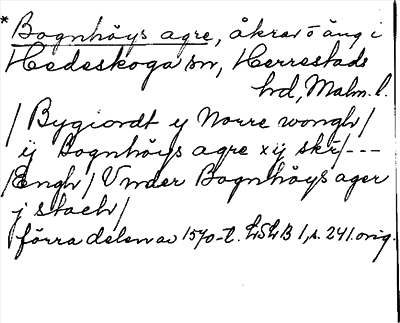 *Bognhöys agre, åkrar o äng i
Hedeskoga sn, Herrestads
hd, Malm. l.
/Bygiordt ij Norre wongh/
ij Bognhöijs agre xij skr/---
/Engh/ Vnder Bognhöys ager
j stach/
förra delen av 1570-t. LSLB 1, s. 241. orig.